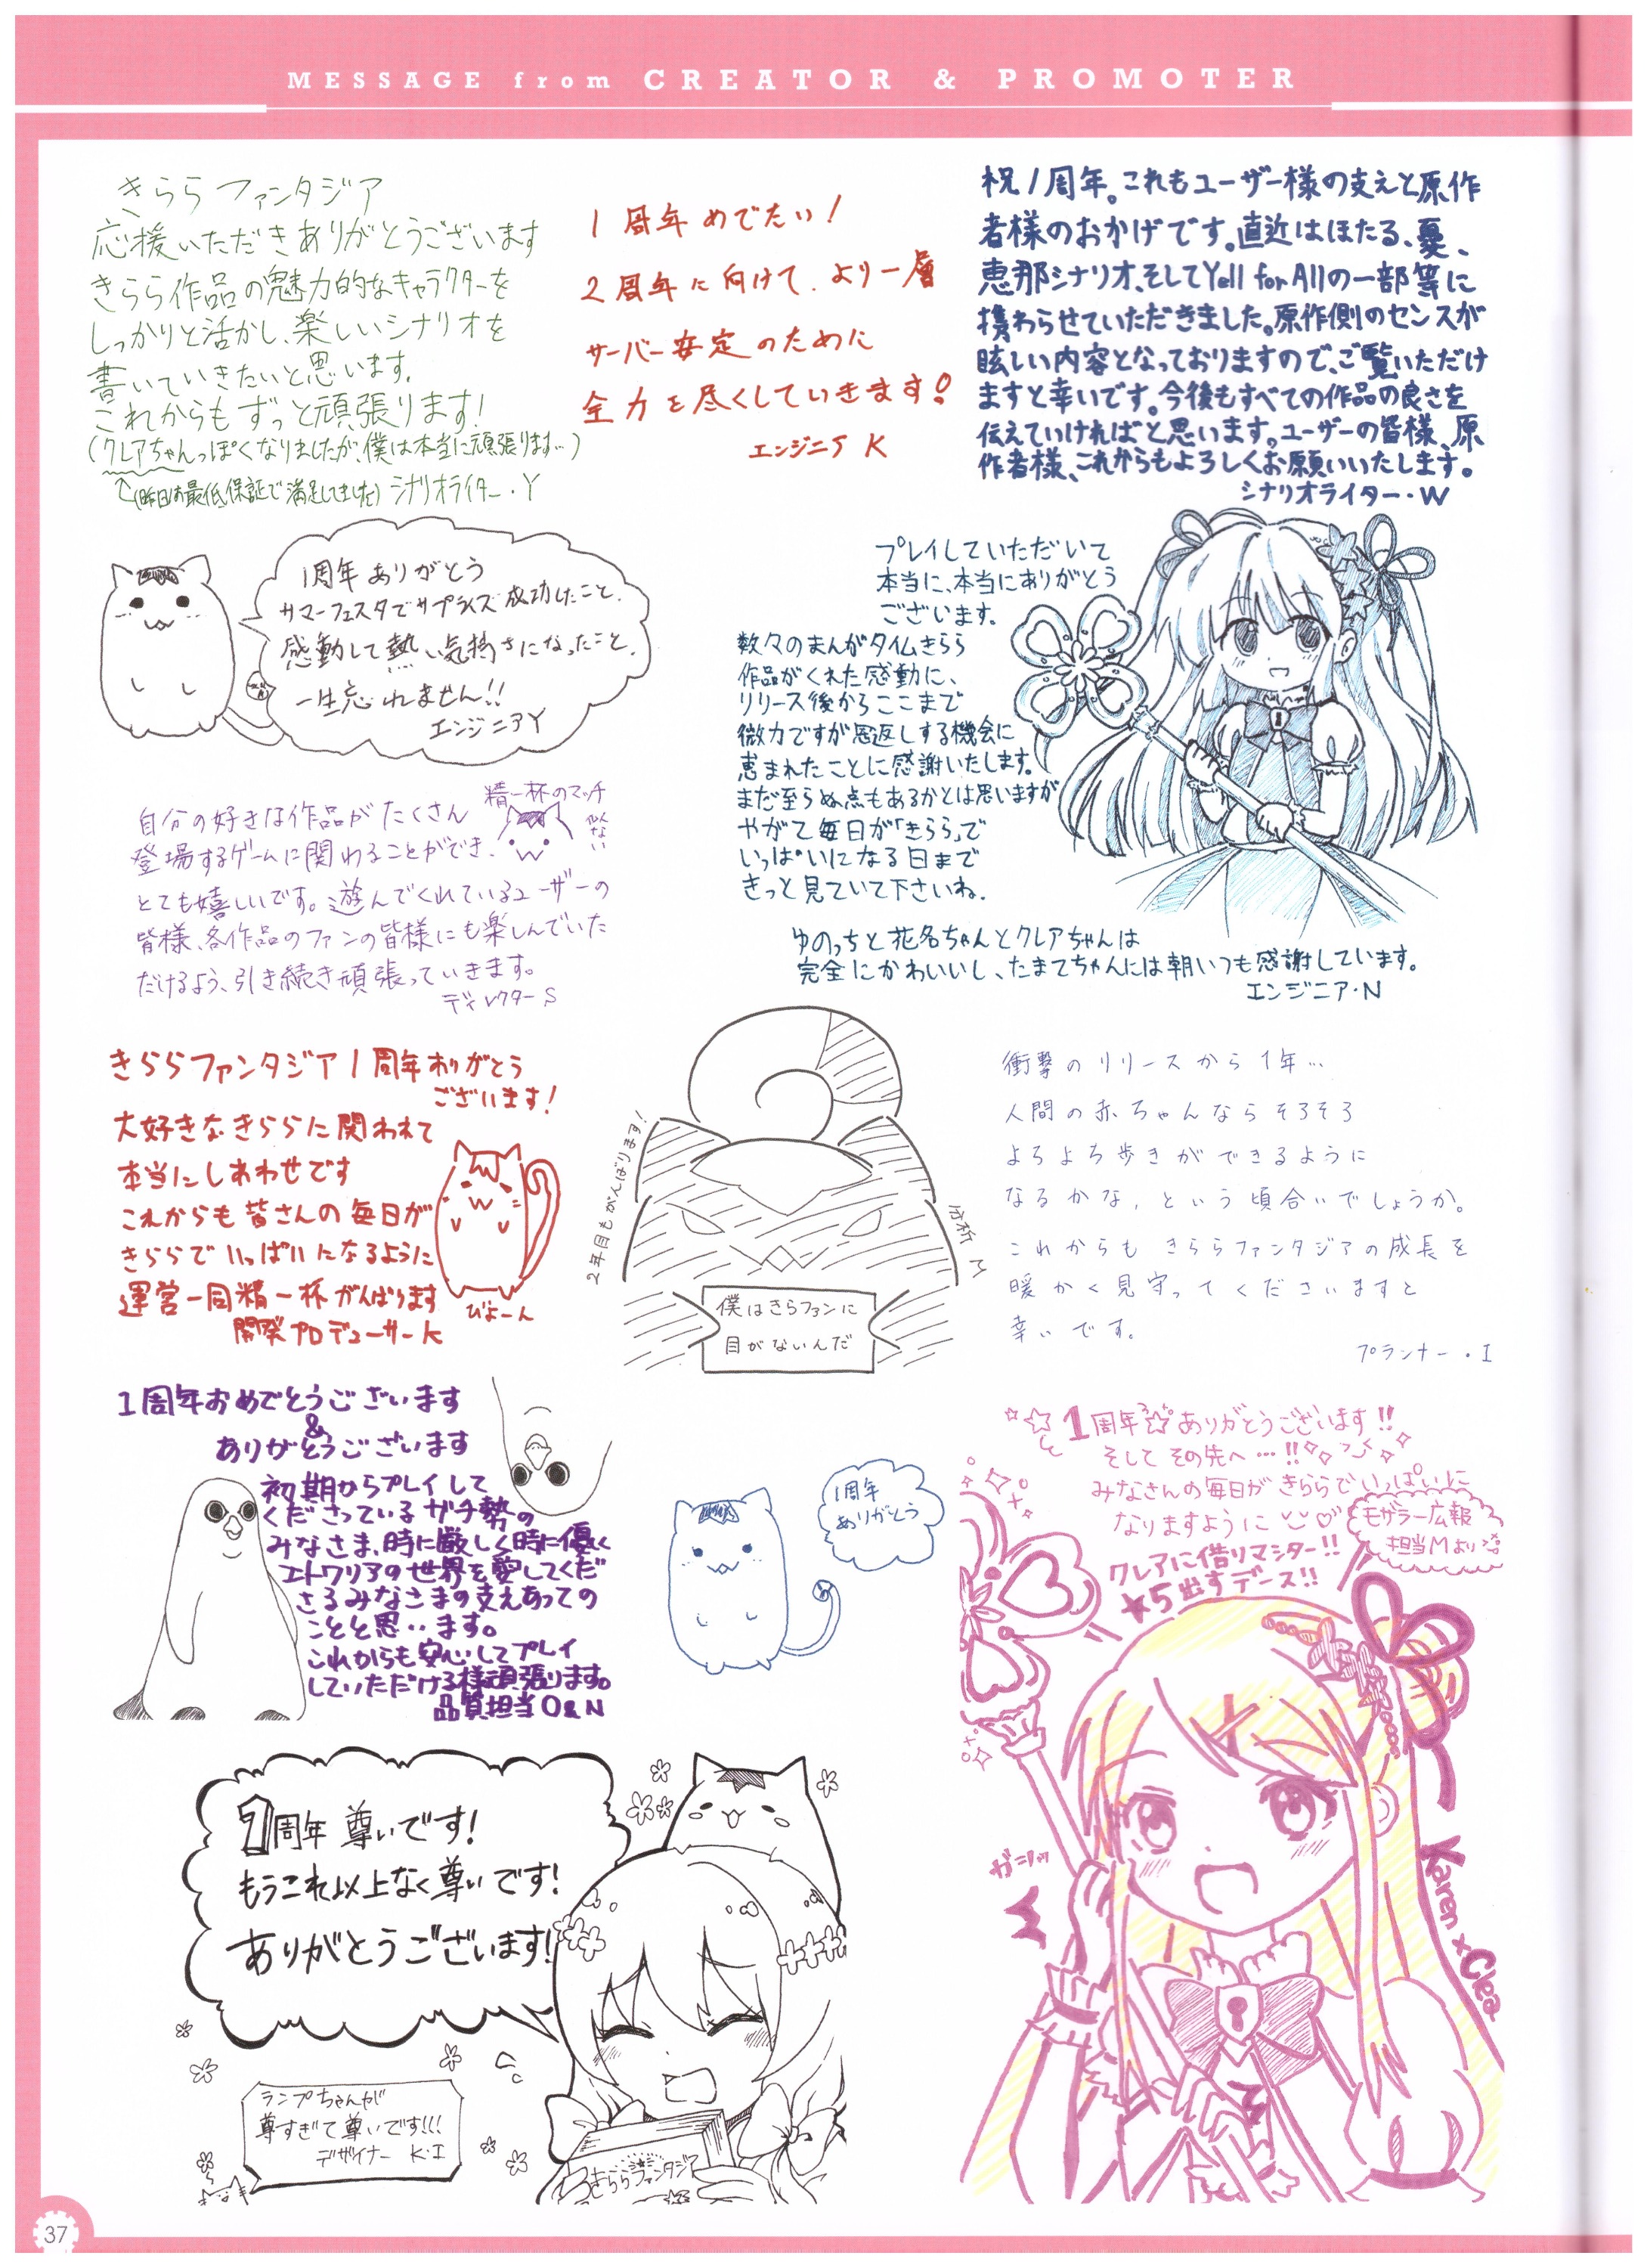 MESSAGE from CREATOR & PROMOTER
きらら ファンタジア
応援いただきありがとうございます
きらら作品の魅力的なキャラクターを
しっかりと活かし、楽しいシナリオを
書いていきたいと思います。
これからもずっと頑張ります!
(クレアちゃんっぽくなりましたが、僕は本当に頑張ります…)
↑(昨日も最低保証で満足してました) シナリオライター・Y
1周年めでたい!
2周年に向けて、より一層
サーバー安定のために
全力を尽くしていきます!
エンジニア K
祝1周年。これもユーザー様の支えと原作
者様のおかげです。直近はほたる、憂、
恵那シナリオ、そしてYell for Allの一部等に
携わらせていただきました。原作側のセンスが
眩しい内容となっておりますので、ご覧いただけ
ますと幸いです。今後もすべての作品の良さを
伝えていければと思います。ユーザーの皆様、原
作者様、これからもよろしくお願いいたします。
シナリオライター・W
1周年ありがとう
サマーフェスタでサプライズ成功したこと、
感動して熱い気持ちになったこと、
一生忘れません!!
エンジニアY
プレイしていただいて
本当に、本当にありがとう
ございます。
数々のまんがタイムきらら
作品がくれた感動に、
リリース後からここまで
微力ですが恩返しする機会に
恵まれたことに感謝いたします。
まだ至らぬ点もあるかとは思いますが
やがて毎日が「きらら」で
いっぱいになる日まで
きっと見ていて下さいね。
ゆのっちと花名ちゃんとクレアちゃんは
完全にかわいいし、たまてちゃんには朝いつも感謝しています。
エンジニア・N
精一杯のマッチ
似ない
自分の好きな作品がたくさん
登場するゲームに関わることができ、
とても嬉しいです。遊んでくれているユーザーの
皆様、各作品のファンの皆様にも楽しんでいた
だけるよう、引き続き頑張っていきます。
ディレクターS
きららファンタジア1周年ありがとう
ございます!
大好きなきららに関われて
本当にしあわせです
これからも皆さんの毎日が
きららでいっぱいになるように
運営一同精一杯がんばります
開発プロデューサーK
びよーん
2年目もがんばります!
分析 M
僕はきらファンに
目がないんだ
衝撃のリリースから1年…
人間の赤ちゃんならそろそろ
よちよち歩きができるように
なるかな、という頃合いでしょうか。
これからも きららファンタジアの成長を
暖かく見守ってくださいますと
幸いです。
プランナー・I
1周年おめでとうございます
&
ありがとうございます
初期からプレイして
くださっているガチ勢の
みなさま、時に厳しく時に優しく
エトワリアの世界を愛してくだ
さるみなさまの支えあっての
ことと思います。
これからも安心してプレイ
していただける様頑張ります。
品質担当O&N
1周年
ありがとう
1周年ありがとうございます!!
そして その先へ…!!
みなさんの毎日が きららでいっぱいに
なりますように
モザラー広報
担当Mより
クレアに借りマシター!!
★5出すデース!!
ガニッ
Karen×Clea
1周年 尊いです!
もうこれ以上なく尊いです!
ありがとうございます!
ランプちゃんが
尊すぎて尊いです!!!
デザイナー K・I
きららファンタジア
37